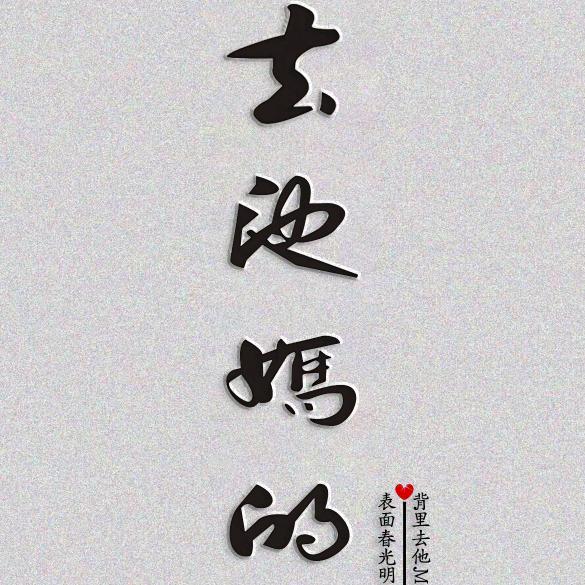 去池媽的
背里去他M
表面春光明